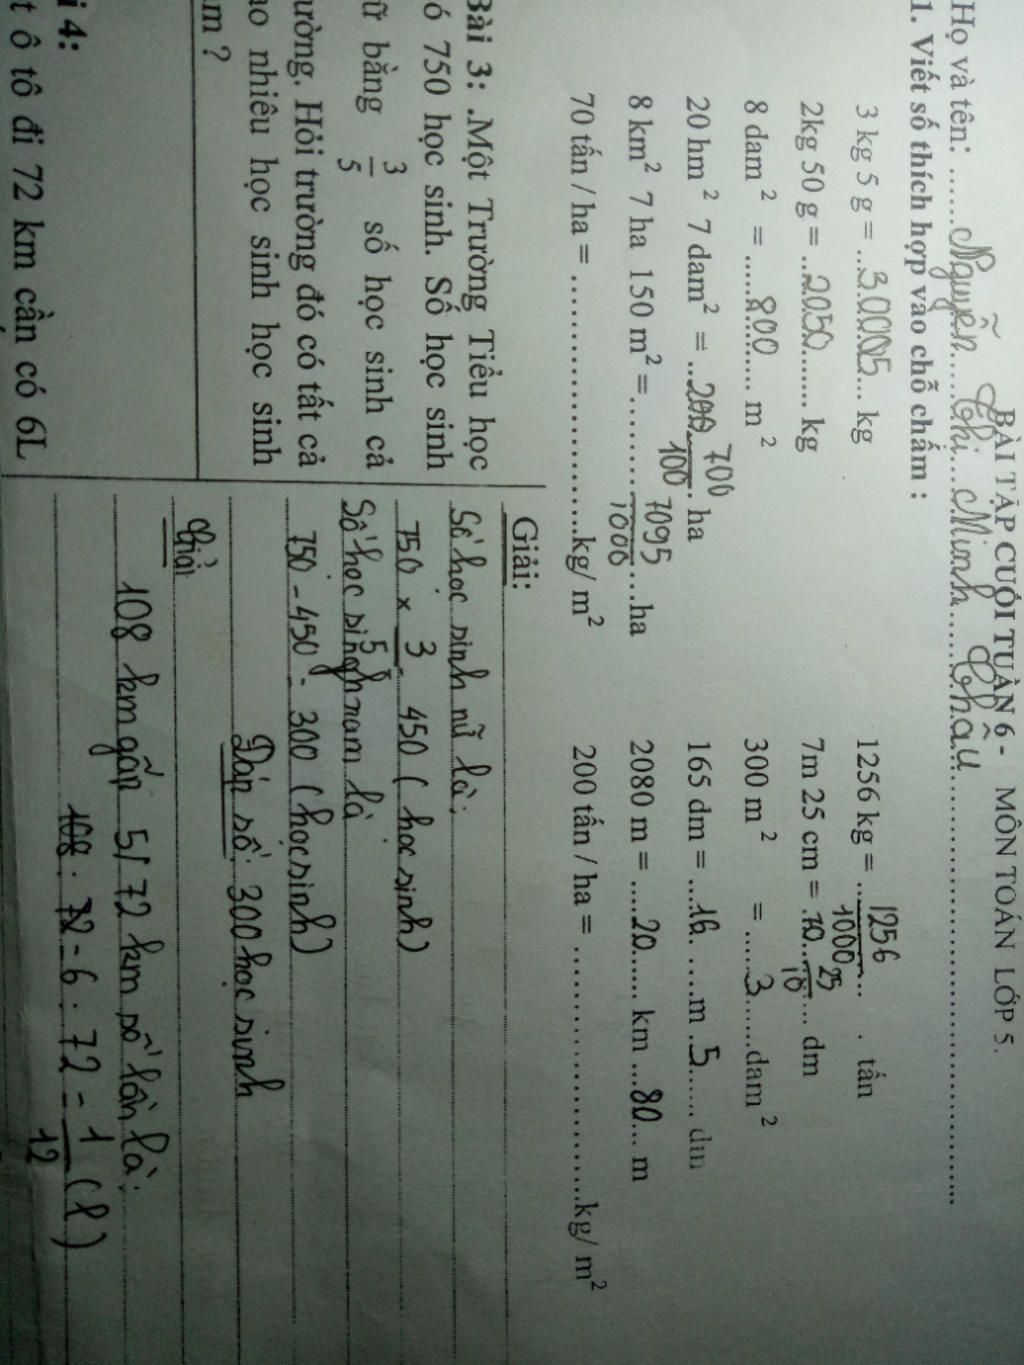 BÀI TẬP CUỐI TUẦN 6 - MÔN TOÁN LỚP 5.
Họ và tên: ......Nguyễn.....Thị....Minh......Châu............
1. Viết số thích hợp vào chỗ chấm :
3 kg 5 g = ...30005... kg
1256 kg = ...1256/1000... . tấn
2kg 50 g = ...2050....... kg
7m 25 cm = .70...25/10.... dm
8 dam² = .......800....... m²
300 m² = ......3......dam²
20 hm² 7 dam² = ..200..700/100.. ha
165 dm = .....16. .....m .5...... dm
8 km² 7 ha 150 m² = ............7095/1000....ha
2080 m = .....20...... km ...80... m
70 tấn / ha = ..............................kg/ m²
200 tấn / ha = ..............................kg/ m²
Bài 3: .Một Trường Tiểu học
ó 750 học sinh. Số học sinh
ữ bằng 3/5 số học sinh cả
ường. Hỏi trường đó có tất cả
ao nhiêu học sinh học sinh
am ?
Giải:
Số học sinh nữ là:
750 × 3/5 = 450 ( học sinh)
Số học sinh nam là
750 - 450 = 300 (học sinh)
Đáp số: 300 học sinh
i 4:
t ô tô đi 72 km cần có 6L
Giải
108 km gấp 5/72 km số lần là:
108 : 72 = 6 : 72 = 1/12 (l)